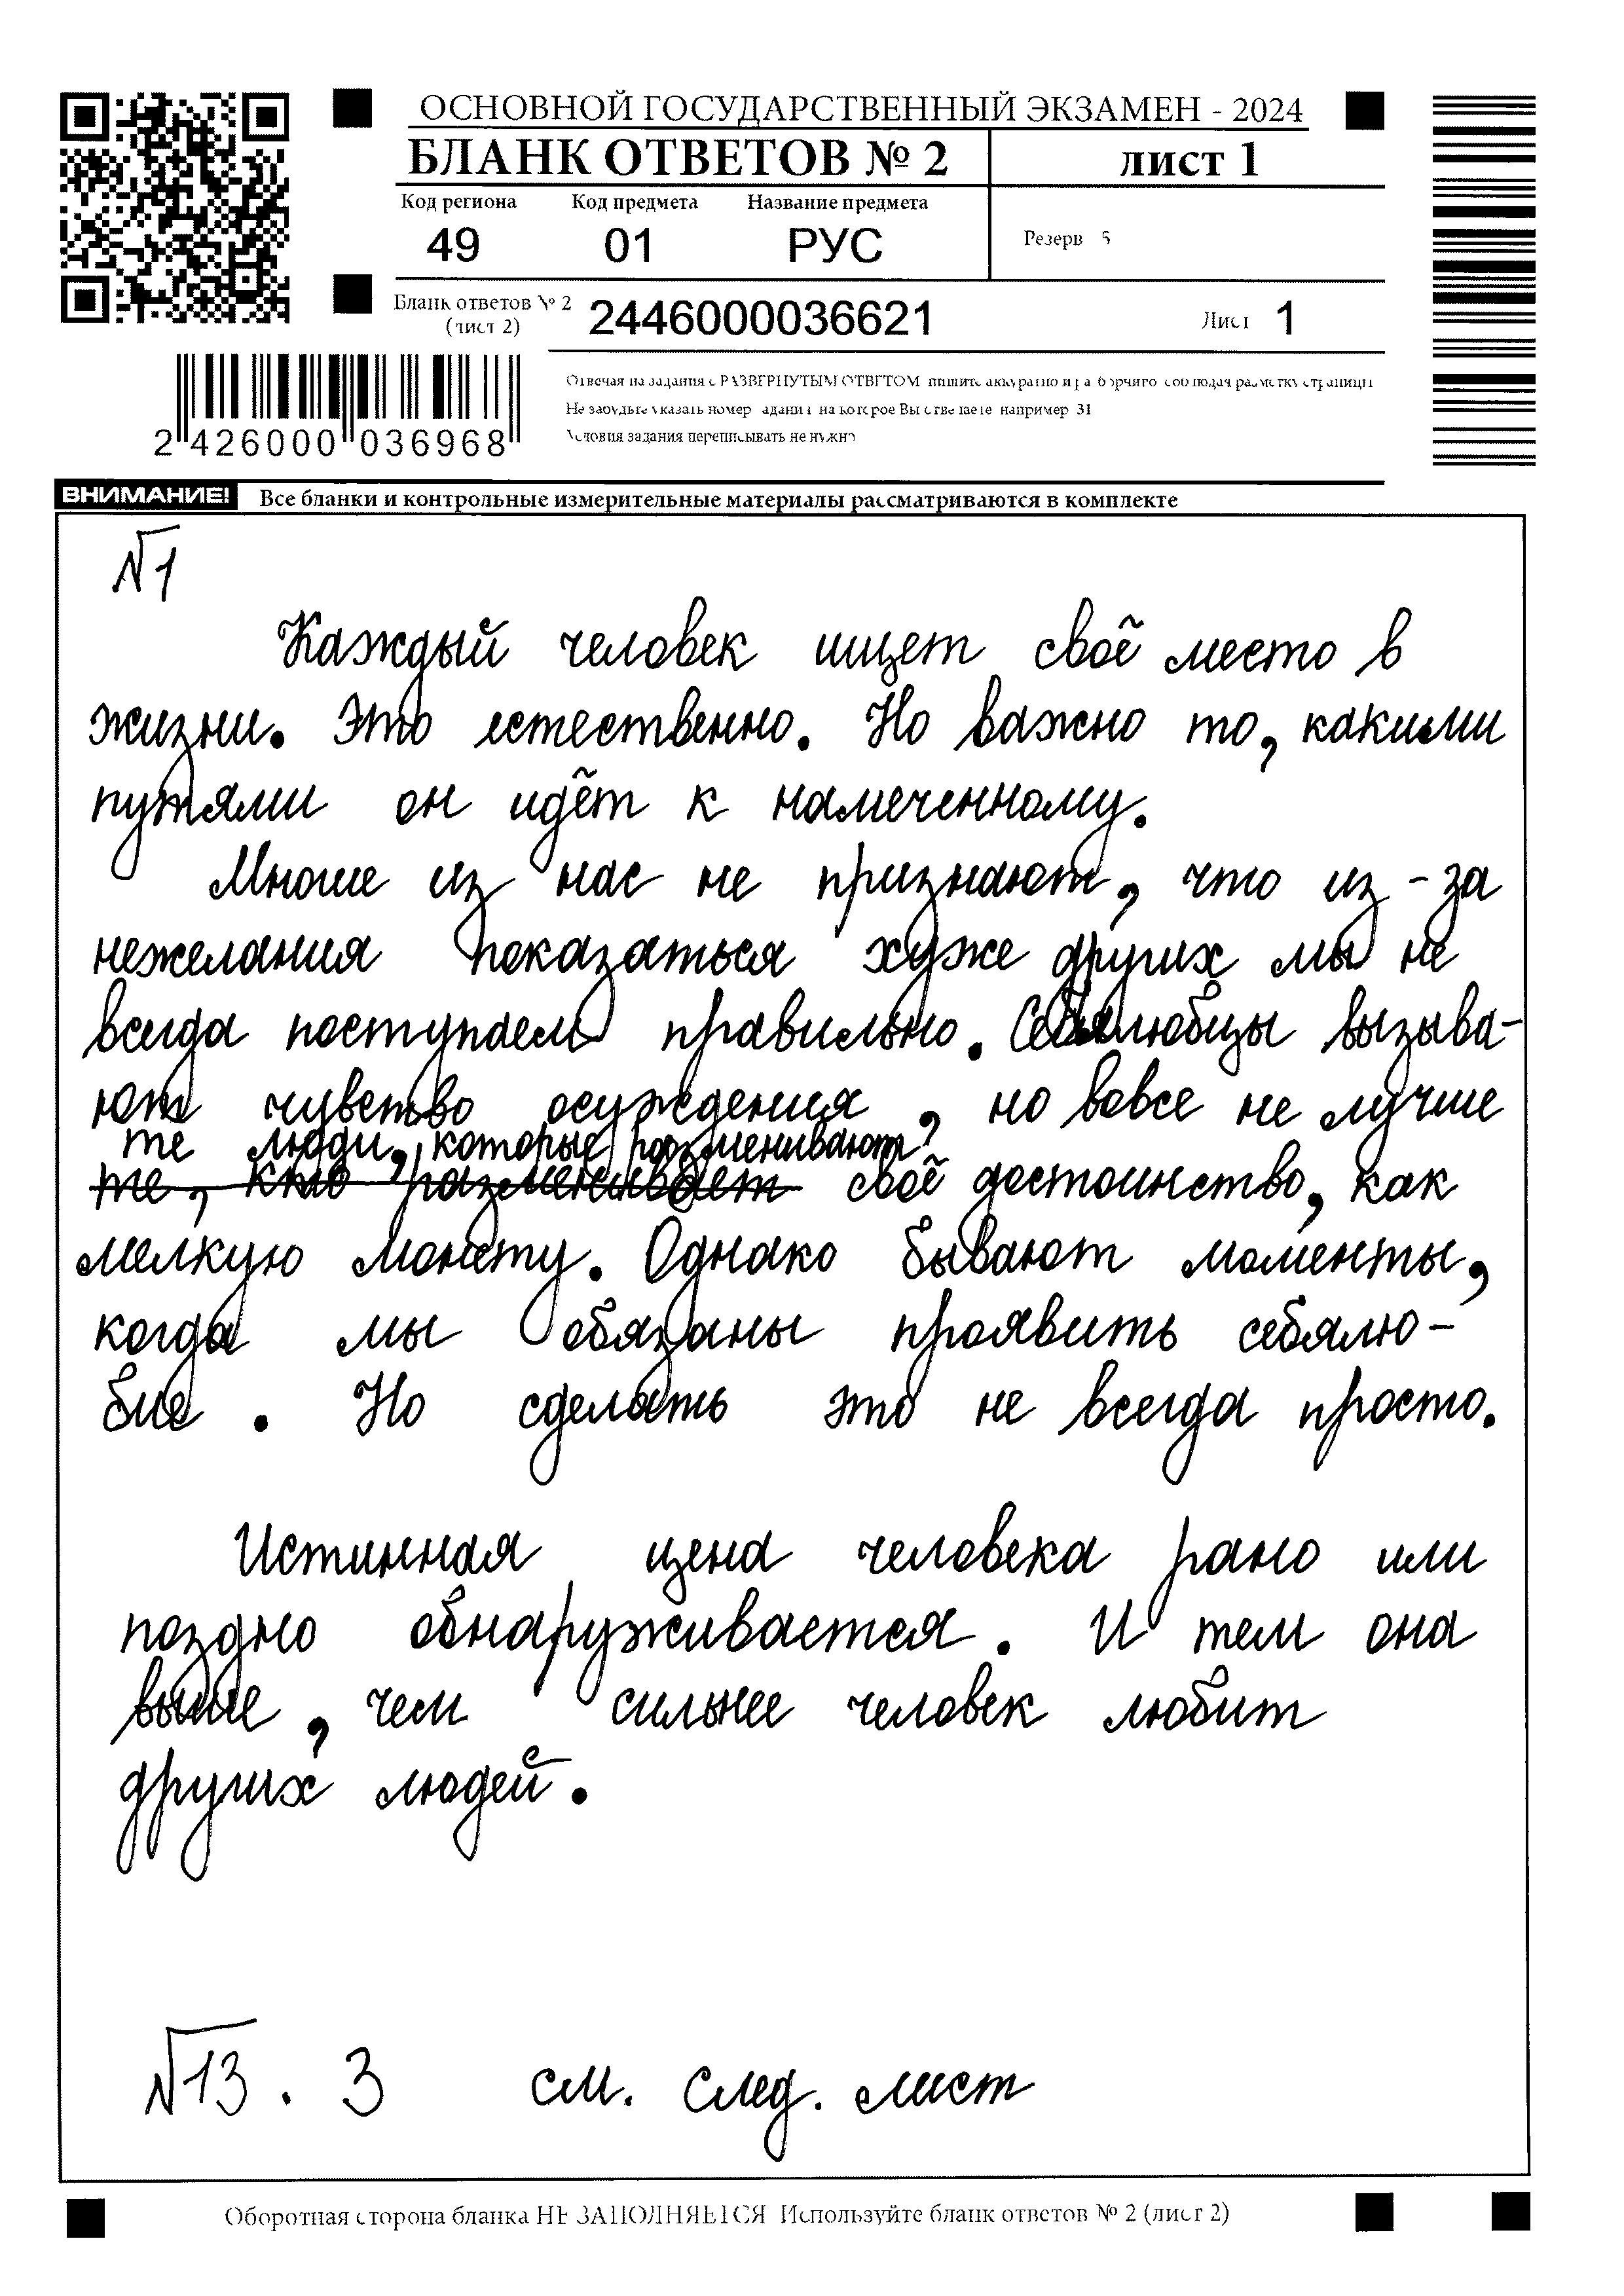 ОСНОВНОЙ ГОСУДАРСТВЕННЫЙ ЭКЗАМЕН - 2024
БЛАНК ОТВЕТОВ № 2 лист 1
Код региона Код предмета Название предмета
49 01 РУС
Резерв 5
Бланк ответов № 2
(лист 2)
2446000036621
Лист 1
2 426000 036968
Отвечая на задания с РАЗВЕРНУТЫМ ОТВЕТОМ пишите аккуратно и разборчиво соблюдая разметку страницы
Не забудьте указать номер задания на которое Вы отвечаете например 31
Условия задания переписывать не нужно
ВНИМАНИЕ! Все бланки и контрольные измерительные материалы рассматриваются в комплекте
№1
Каждый человек ищет своё место в
жизни. Это естественно. Но важно то, какими
путями он идёт к намеченному.
Многие из нас не признают, что из-за
нежелания показаться хуже других мы не
всегда поступаем правильно. Себялюбцы вызыва-
ют чувство осуждения, но вовсе не лучше
те люди, которые разменивают
те, кто разменивает своё достоинство, как
мелкую монету. Однако бывают моменты,
когда мы обязаны проявить себялю-
бие. Но сделать это не всегда просто.
Истинная цена человека рано или
поздно обнаруживается. И тем она
выше, чем сильнее человек любит
других людей.
№13.3 см. след. лист
Оборотная сторона бланка НЕ ЗАПОЛНЯЕТСЯ Используйте бланк ответов № 2 (лист 2)